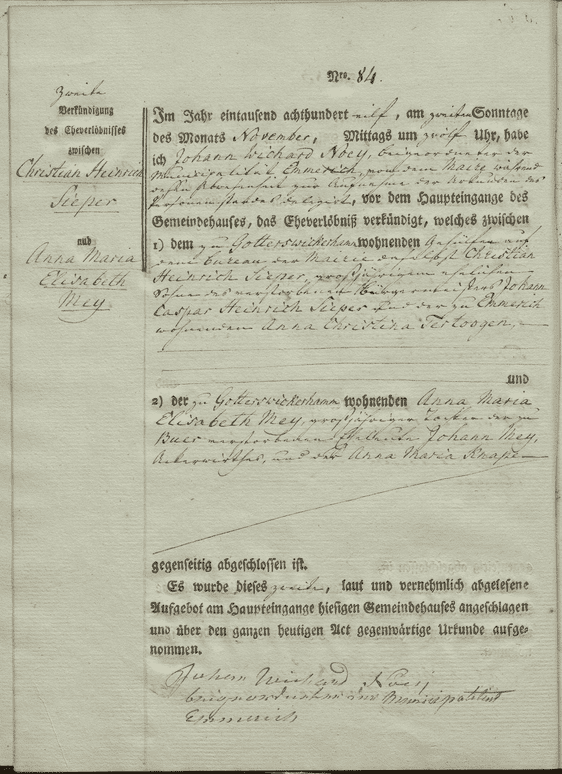 Nro. 84.
Zweite
Verkündigung
des Eheverlöbnisses
zwischen
Christian Heinrich
Sieper
und
Anna Maria
Elisabeth
Mey
Im Jahr eintausend achthundert eilf, am zweiten Sonntage
des Monats November, Mittags um zwölf Uhr, habe
ich Johann Wichard Noeÿ, beigeordneter der
Municipalität Emmerich, von dem Maire während
dessen Abwesenheit zur Aufnahme der Urkunden des
Personenstandes delegirt, vor dem Haupteingange des
Gemeindehauses, das Eheverlöbniß verkündigt, welches zwischen
1) dem zu Gotterswickerhamm wohnenden Gehülfen auf
dem Bureau der Mairie daselbst Christian
Heinrich Sieper, großjährigem ehelichen
Sohne des verstorbenen Johann
Caspar Heinrich Sieper und der zu Emmerich
wohnenden Anna Christina Tertoogen,
und
2) der zu Gotterswickerhamm wohnenden Anna Maria
Elisabeth Mey, großjähriger Tochter der zu
Buer verstorbenen Eheleute Johann Mey,
Ackerwirthes, und der Anna Maria Knape
gegenseitig abgeschlossen ist.
Es wurde dieses zweite, laut und vernehmlich abgelesene
Aufgebot am Haupteingange hiesigen Gemeindehauses angeschlagen
und über den ganzen heutigen Act gegenwärtige Urkunde aufge-
nommen.
Johann Wichard Noeÿ
beigeordneter der Municipalität
Emmerich